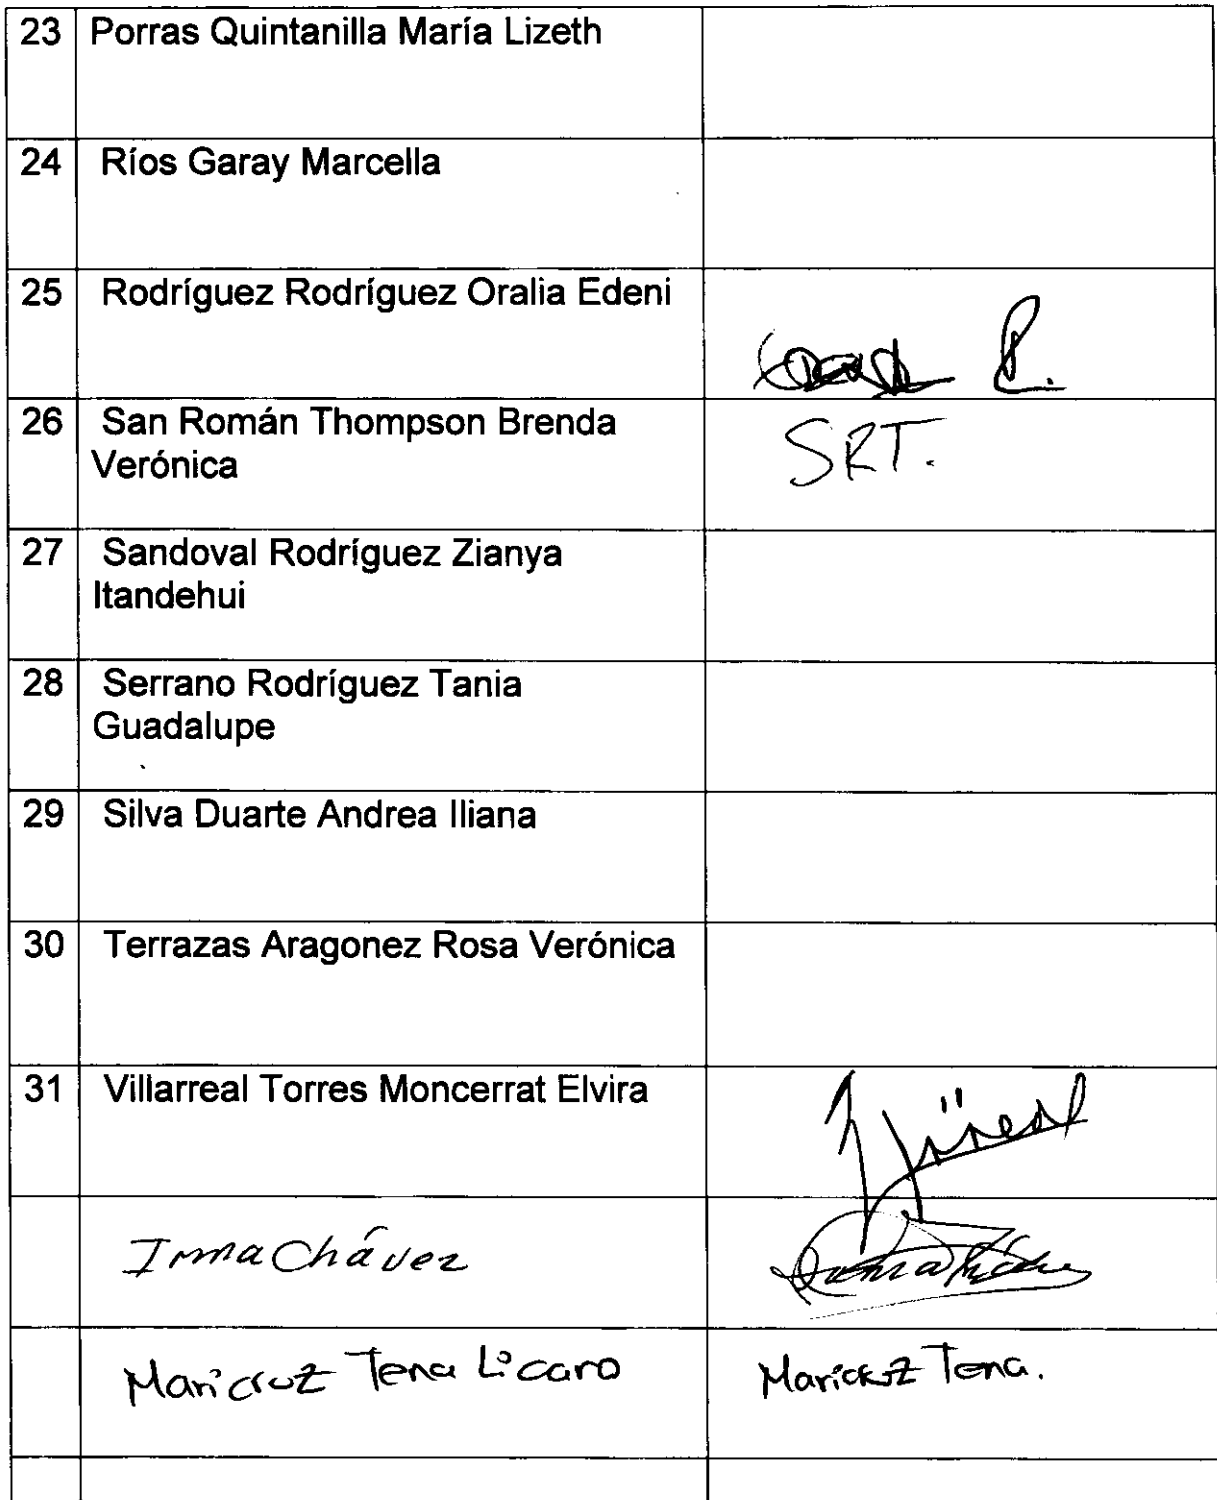 23 Porras Quintanilla María Lizeth
24 Ríos Garay Marcella
25 Rodríguez Rodríguez Oralia Edeni
26 San Román Thompson Brenda SRT.
Verónica
27 Sandoval Rodríguez Zianya
Itandehui
28 Serrano Rodríguez Tania
Guadalupe
29 Silva Duarte Andrea Iliana
30 Terrazas Aragonez Rosa Verónica
31 Villarreal Torres Moncerrat Elvira
Irma Chávez
Maricruz Tena Licaro Maricruz Tena.